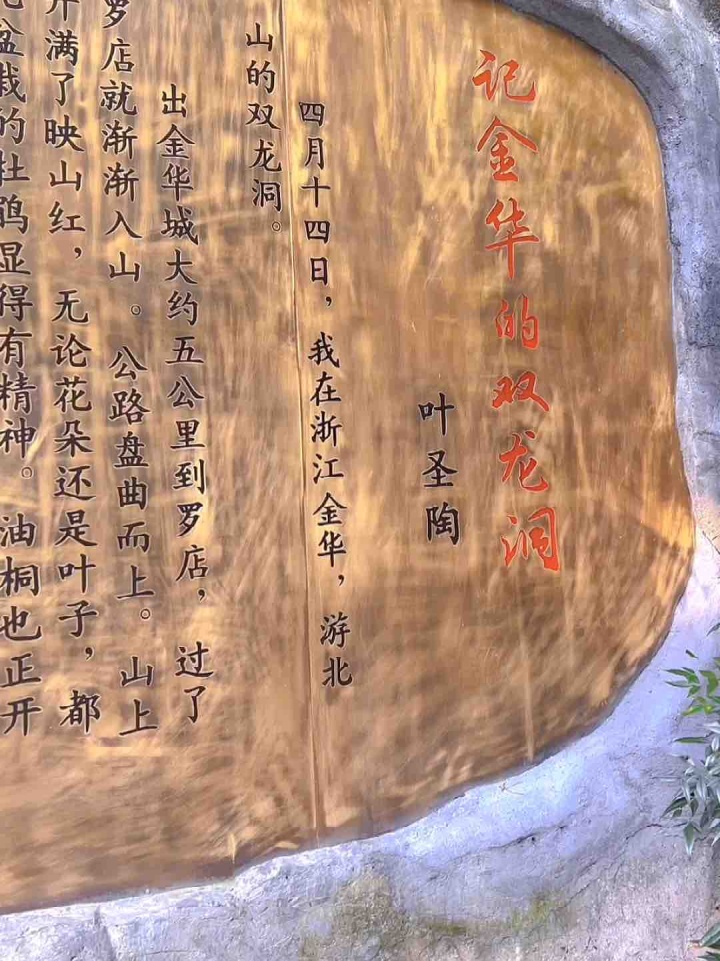 记金华的双龙洞
叶圣陶
四月十四日，我在浙江金华，游北
山的双龙洞。
出金华城大约五公里到罗店，过了
罗店就渐渐入山。公路盘曲而上。山上
开满了映山红，无论花朵还是叶子，都
盆栽的杜鹃显得有精神。油桐也正开